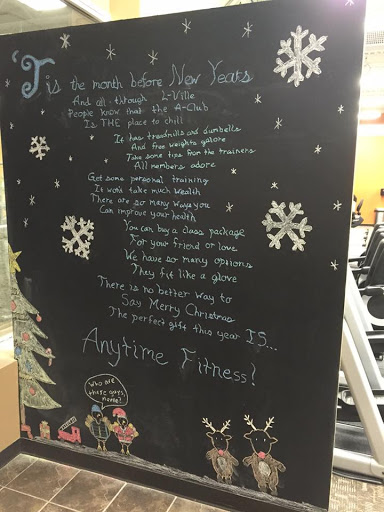 'Tis the month before New Years
And all through L-Ville
People know that the A-Club
Is THE place to chill
It has treadmills and dumbells
And free weights galore
Take some tips from the trainers
All members adore
Get some personal training
It won't take much wealth
There are so many ways you
Can improve your health
You can buy a class package
For your friend or love
We have so many options
They fit like a glove
There is no better way to
Say Merry Christmas
The perfect gift this year IS...
Anytime Fitness!
Who are
these guys,